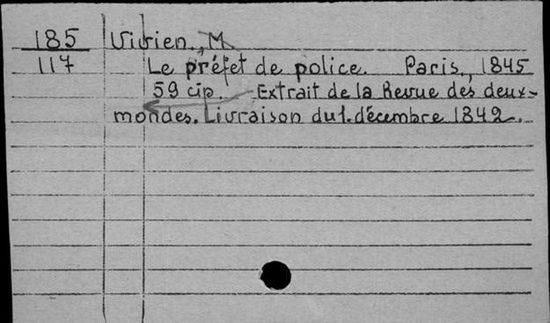 185 Vivien., M
117 Le préfet de police. Paris., 1845
59 cip. Extrait de la Revue des deux-
mondes. Livraison du 1. décembre 1842.